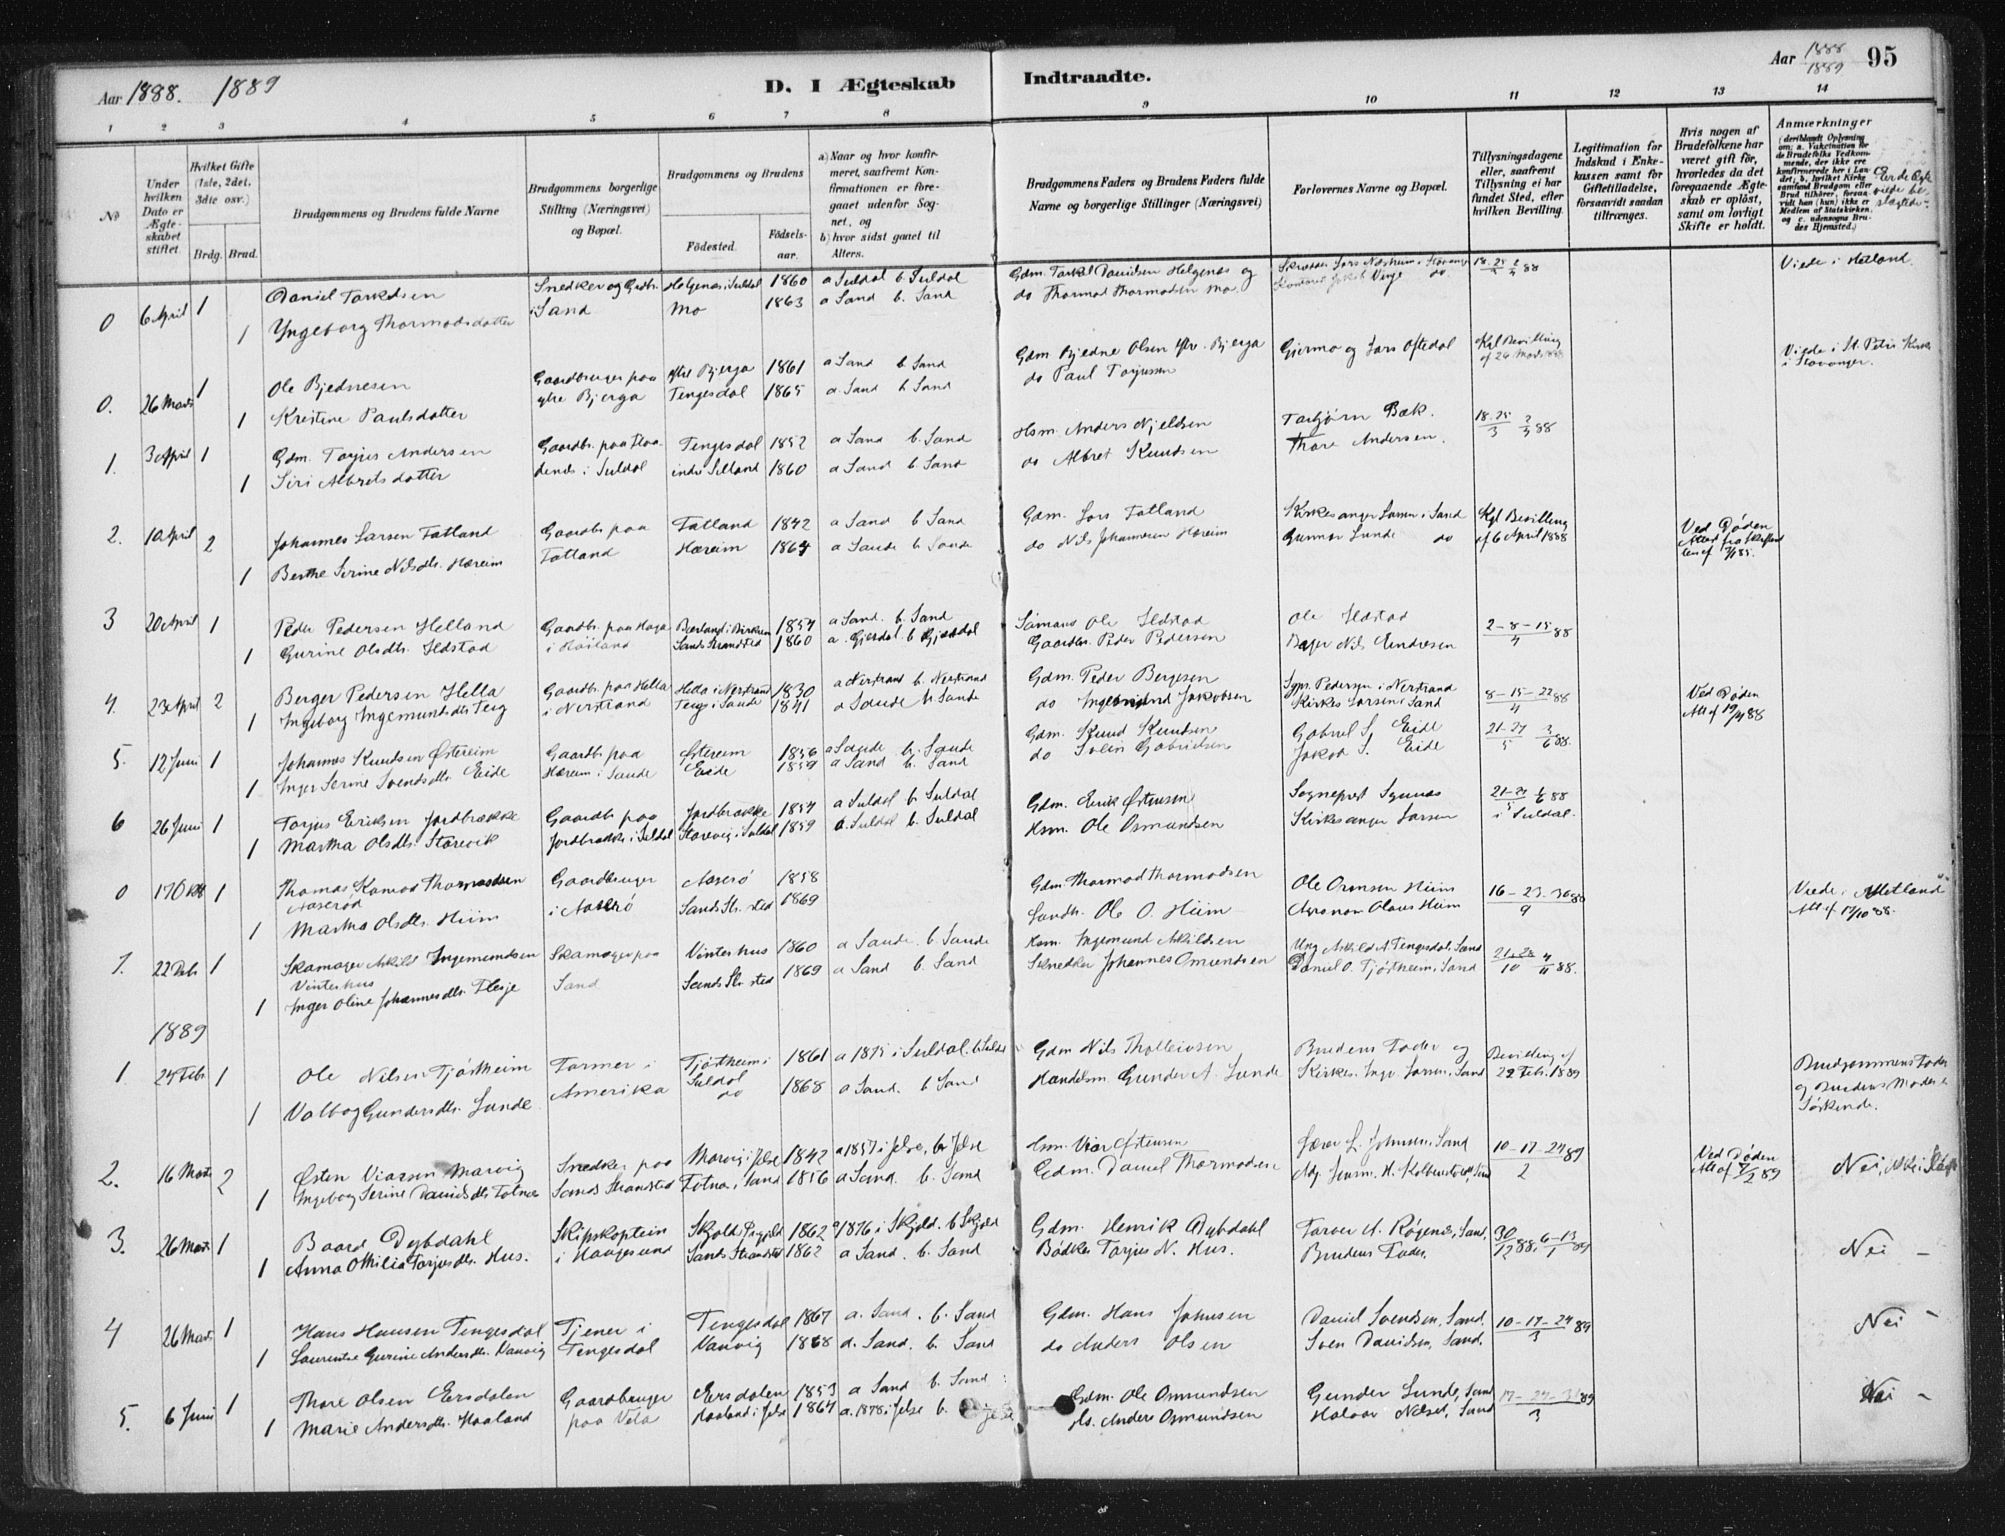 Aar 1888. 1889
D. I Ægteskab
Indtraadte.
Aar 1888
1889
95
1 2 3 4 5 6 7 8 9 10 11 12 13 14
No
Under hvilken Dato er Ægteskabet stiftet.
Hvilket Gifte (1ste, 2det, 3die osv.)
Brdg. Brud.
Brudgommens og Brudens fulde Navne
Brudgommens borgerlige Stilling (Næringsvei) og Bopæl.
Brudgommens og Brudens
Fødested.
Fødselsaar.
a) Naar og hvor konfirmeret, saafremt Konfirmationen er foregaaet udenfor Sognet, og
b) hvor sidst gaaet til Alters.
Brudgommens Faders og Brudens Faders fulde Navne og borgerlige Stillinger (Næringsvei)
Forlovernes Navne og Bopæl.
Tillysningsdagene eller, saafremt Tillysning ei har fundet Sted, efter hvilken Bevilling.
Legitimation for Indskud i Enkekassen samt for Giftetilladelse, forsaavidt saadan tiltrænges.
Hvis nogen af Brudefolkene har været gift før, hvorledes da det foregaaende Ægteskab er opløst, samt om lovligt Skifte er holdt.
Anmærkninger
(deriblandt Oplysning om: a. Vakcination for de Brudefolks Vedkommende, der ikke ere konfirmerede her i Landet; b. hvilket Kirkesamfund Brudgom eller Brud tilhører, forsaavidt han (hun) ikke er Medlem af Statskirken, og c. udensogns Brudes Hjemsted.)
0 6 April 1 Daniel Torkelsen Snedker og Grdbr. Helgenæs i Suldal 1860 a Suldal b. Suldal Gdm. Torkel Danielsen Helgenæs og 88 Viede i Hetland.
1 Yngeborg Thormodsdatter i Sand Mo 1863 a Sand b. Sand do Thormod Thormodsen Mo.
0. 26 Marts 1 Ole Bjednesen Gaardbruger paa ytre Bjerga 1861 a Sand b Sand Gdm Bjedne Olsen Ytre-Bjerga og Lars Oftedal Kgl Bevilling Viede i St. Petri Kirke
1 Kristine Paulsdatter ytre Bjerga Tengesdal 1865 a Sand b Sand do Paul Torjussen af 26 Marts 1888 i Stavanger.
1. 3 April 1 Gdm. Torjus Andersen Gaardbr. paa Tengesdal 1852 a Sand b. Sand Hsm. Anders Njeldsen Torbjørn Bæk. 18. 25 88
1 Siri Albretsdatter i Suldal indre Selland 1860 a Sand b. Sand do Albret Knudsen Thore Andersen. 3
2. 10 April 2 Johannes Larsen Tatland Gaardbr. paa Tatland 1842 a Sand b Sand Gdm. Lars Tatland Kirkesanger Larsen i Sand Kgl Bevilling Ved Døden
1 Berthe Serine Nilsdtr. Hæreim Tatland Hæreim 1864 a Sande b. Sande do Nils Johannesen Hæreim Gunnar Lunde do af 6 April 1888
3 20 April 1 Peder Pedersen Helland Gaardbr. paa Haga 1854 a Sand. b. Sand Ole Ilstad 2-8-15 88
1 Gurine Olsdtr. Ilstad i Høiland Sands Strandsted 1860 a. Gjesdal b Gjesdal Gaardbr. Peder Pedersen Nils Endresen 4
4. 23 April 2 Berger Pedersen Hella Gaardbr. paa Hella Hella i Nerstrand 1830 a Nerstrand b. Nerstrand Gdm. Peder Bergesen Pedersen i Nerstrand 8-15-22 88 Ved Døden
1 Ingeborg Ingemundsdtr Teig i Nerstrand Teig i Sande 1841 a Sande b Sande do Ingemund Jakobsen Kirkes. Larsen i Sand 4
5. 12 Juni 1 Johannes Knudsen Østereim Gaardbr. paa Østereim 1856 a Sande b. Sande Gdm. Knud Knudsen Gabriel S. Eide 88.
1 Inger Serine Svendsdtr. Eide Hæreim i Sande Eide 1859 a Sand b. Sand do Svein Gabrielsen Jakob S. Eide
6 26 Juni 1 Torjus Eriksen Jordbrække Gaardbr paa Jordbrække 1854 a Suldal b. Suldal Gdm. Erik Østensen Sognepræst 88
1 Martha Olsdtr. Storevik Jordbrække i Suldal Storevig i Suldal 1859 a. Suldal b. Suldal Hsm. Ole Osmundsen Kirkesanger Larsen i Suldal.
0 17 Okt 88 1 Thomas Konrad Thormodsen Gaardbruger Aaserø 1858 Gdm Thormod Thormodsen Ole Ormsen Hiim 16-23-30 88 Viede i "Hetland"
Aaserød i Aaserø
1 Martha Olsdtr. Hiim Sands Str. sted 1869 Landh. Ole O. Hiim Agronom Olaus Hiim 9 Att af 17/10 88.
7. 22 1 Skomager Askild Ingemundsen Skomager paa Vinterhus 1860 a Sande. b. Sande Hsm. Ingemund Askildsen Ung. Askild A. Tengesdal, Sand 88.
Vinterhus
1 Inger Oline Johannesdtr. Flesje Sand Sands Str. sted 1869 a Sand b. Sand Snedker Johannes Omundsen Daniel O. Tjøstheim, Sand 10 11
1889
1. 24 Febr. 1 Ole Nilsen Tjøstheim Farmer i Tjøstheim i 1861 a 1875 i Suldal. Gdm Nils Tholleivsen Brudens Fader og Bevilling af Brudgommens Fader
1 Valborg Gundersdtr. Lunde Amerika Suldal do 1868 a Sand. b Sand Handelsm. Gunder A. Lunde Kirkes. Inge Larsen, Sand 22 Feb. 1889 og Brudens Moder
Søskende.
2. 16 Marts 2 Østen Viarsen Marvig Snedker paa Marvig i Jelse 1842 a 1857 i Jelse, b. Jelse Hsm. Viar Østensen Johnsen, Sand 10-17-24 89 Ved Døden Nei,
1 Ingeborg Serine Danielsdtr. Fotnæs Sands Strandsted Fotnæs i Sand 1856 a Sand. b. Sand Gdm. Daniel Thormodsen 2
3. 26 Marts 1 Baard Dybdahl Skibskaptein Skjold Prgjeld 1862 a 1876 i Skjold. b Skjold Gdm. Henrik Dybdahl Farver A. Røgenes, Sand, 30 88, 6-13 89 Nei -
1 Anna Othilia Torjusdtr. Hus. i Haugesund Sands Strandsted 1862 a Sand. b. Sand Bødker Torjus N. Hus. Brudens Fader. 12 1
4 26 Marts 1 Hans Hansen Tengesdal Tjener i Tengesdal 1867 a. Sand. b. Sand Gdm. Hans Johnsen Daniel Svendsen, Sand. 10-17-24 89 Nei -
1 Laurentse Gurine Andersdtr. Vanvig Tengesdal Vanvig 1868 a. Sand. b. Sand do Anders Olsen Sven Danielsen, Sand. 3
5. 6 Juni 1 Thore Olsen Ersdalen Gaardbruger Ersdalen 1853 a Sand b. Sand Gdm. Ole Omundsen Gunder Lunde, Sand 17-24-31 89 Nei -
1 Marie Andersdtr. Haaland paa Haaland i Jelse 1864 a. 1878 i Jelse b. Jelse Anders Osmundsen Sand 3